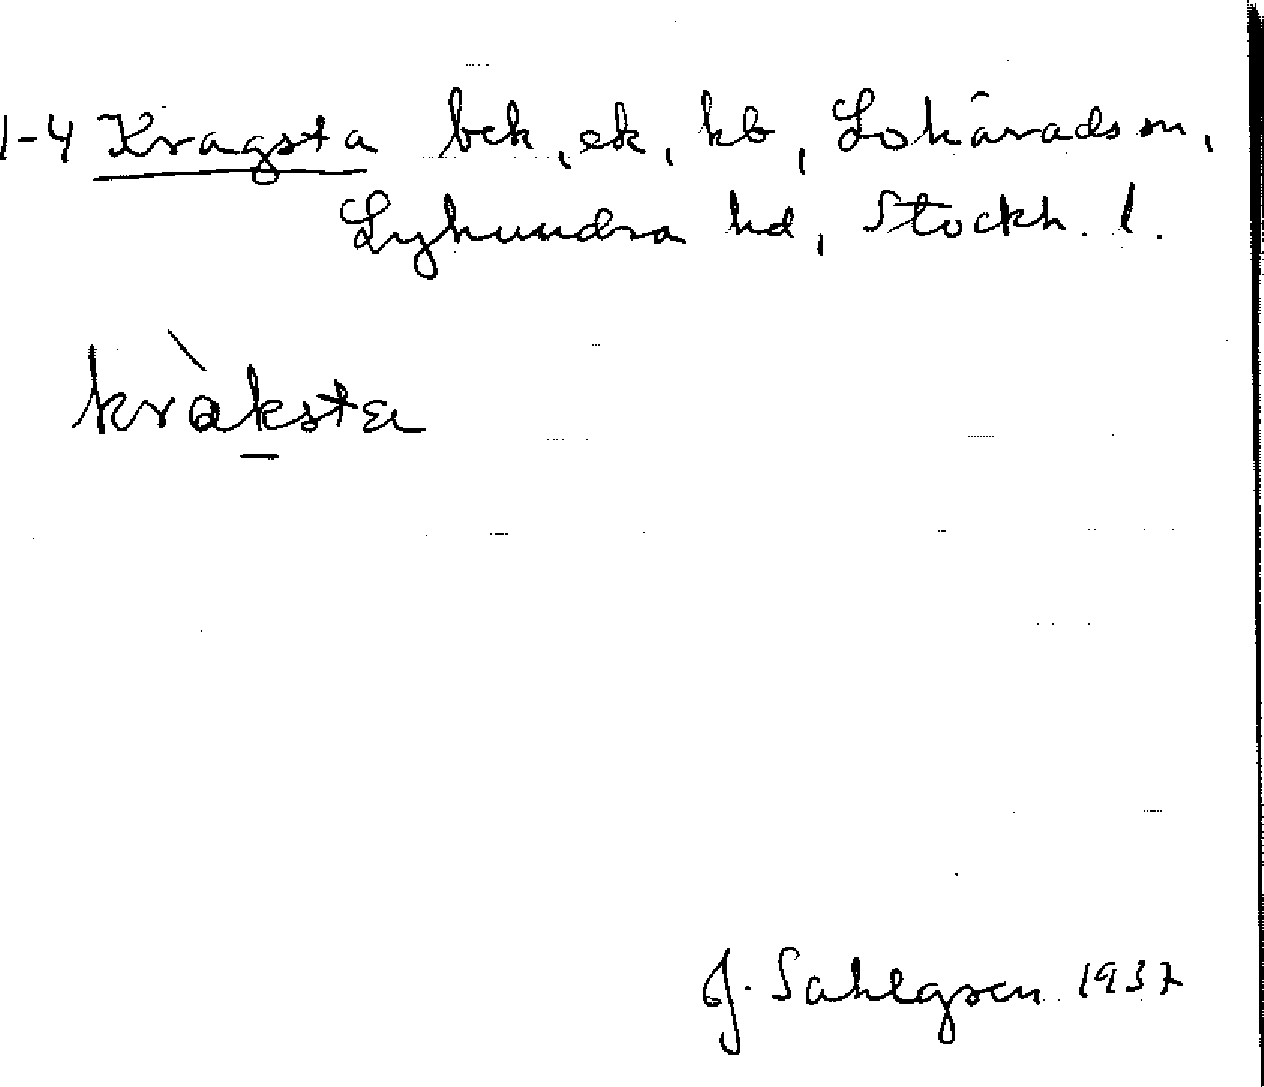 1-4 Kragsta bck, ek, kb, Lohärads sn,
Lyhundra hd, Stockh. l.
kràksta
J. Sahlgren 1937